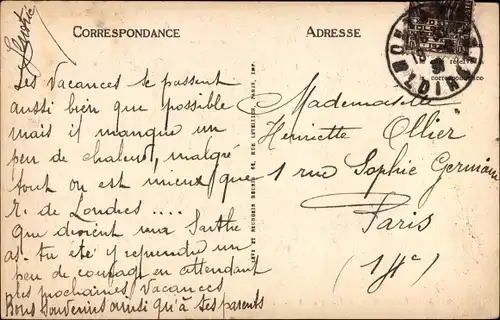 CORRESPONDANCE
ADRESSE
Les Vacances se passent
aussi bien que possible
mais il manque un
peu de chaleur, malgré
tout on est mieux que
R. de Londres ....
Que doivent ma Sarthe
as-tu été y reprendre un
peu de courage en attendant
les prochaines vacances
Bons Souvenirs ainsi qu'à tes parents
LEVY ET NEURDEIN REUNIS 44, RUE LETELLIER, PARIS. IMP.
Mademoiselle
Henriette Ollier
1 rue Sophie Germain
Paris